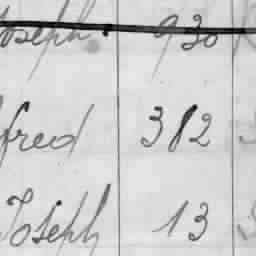 Joseph 930
fred 312
Joseph 13